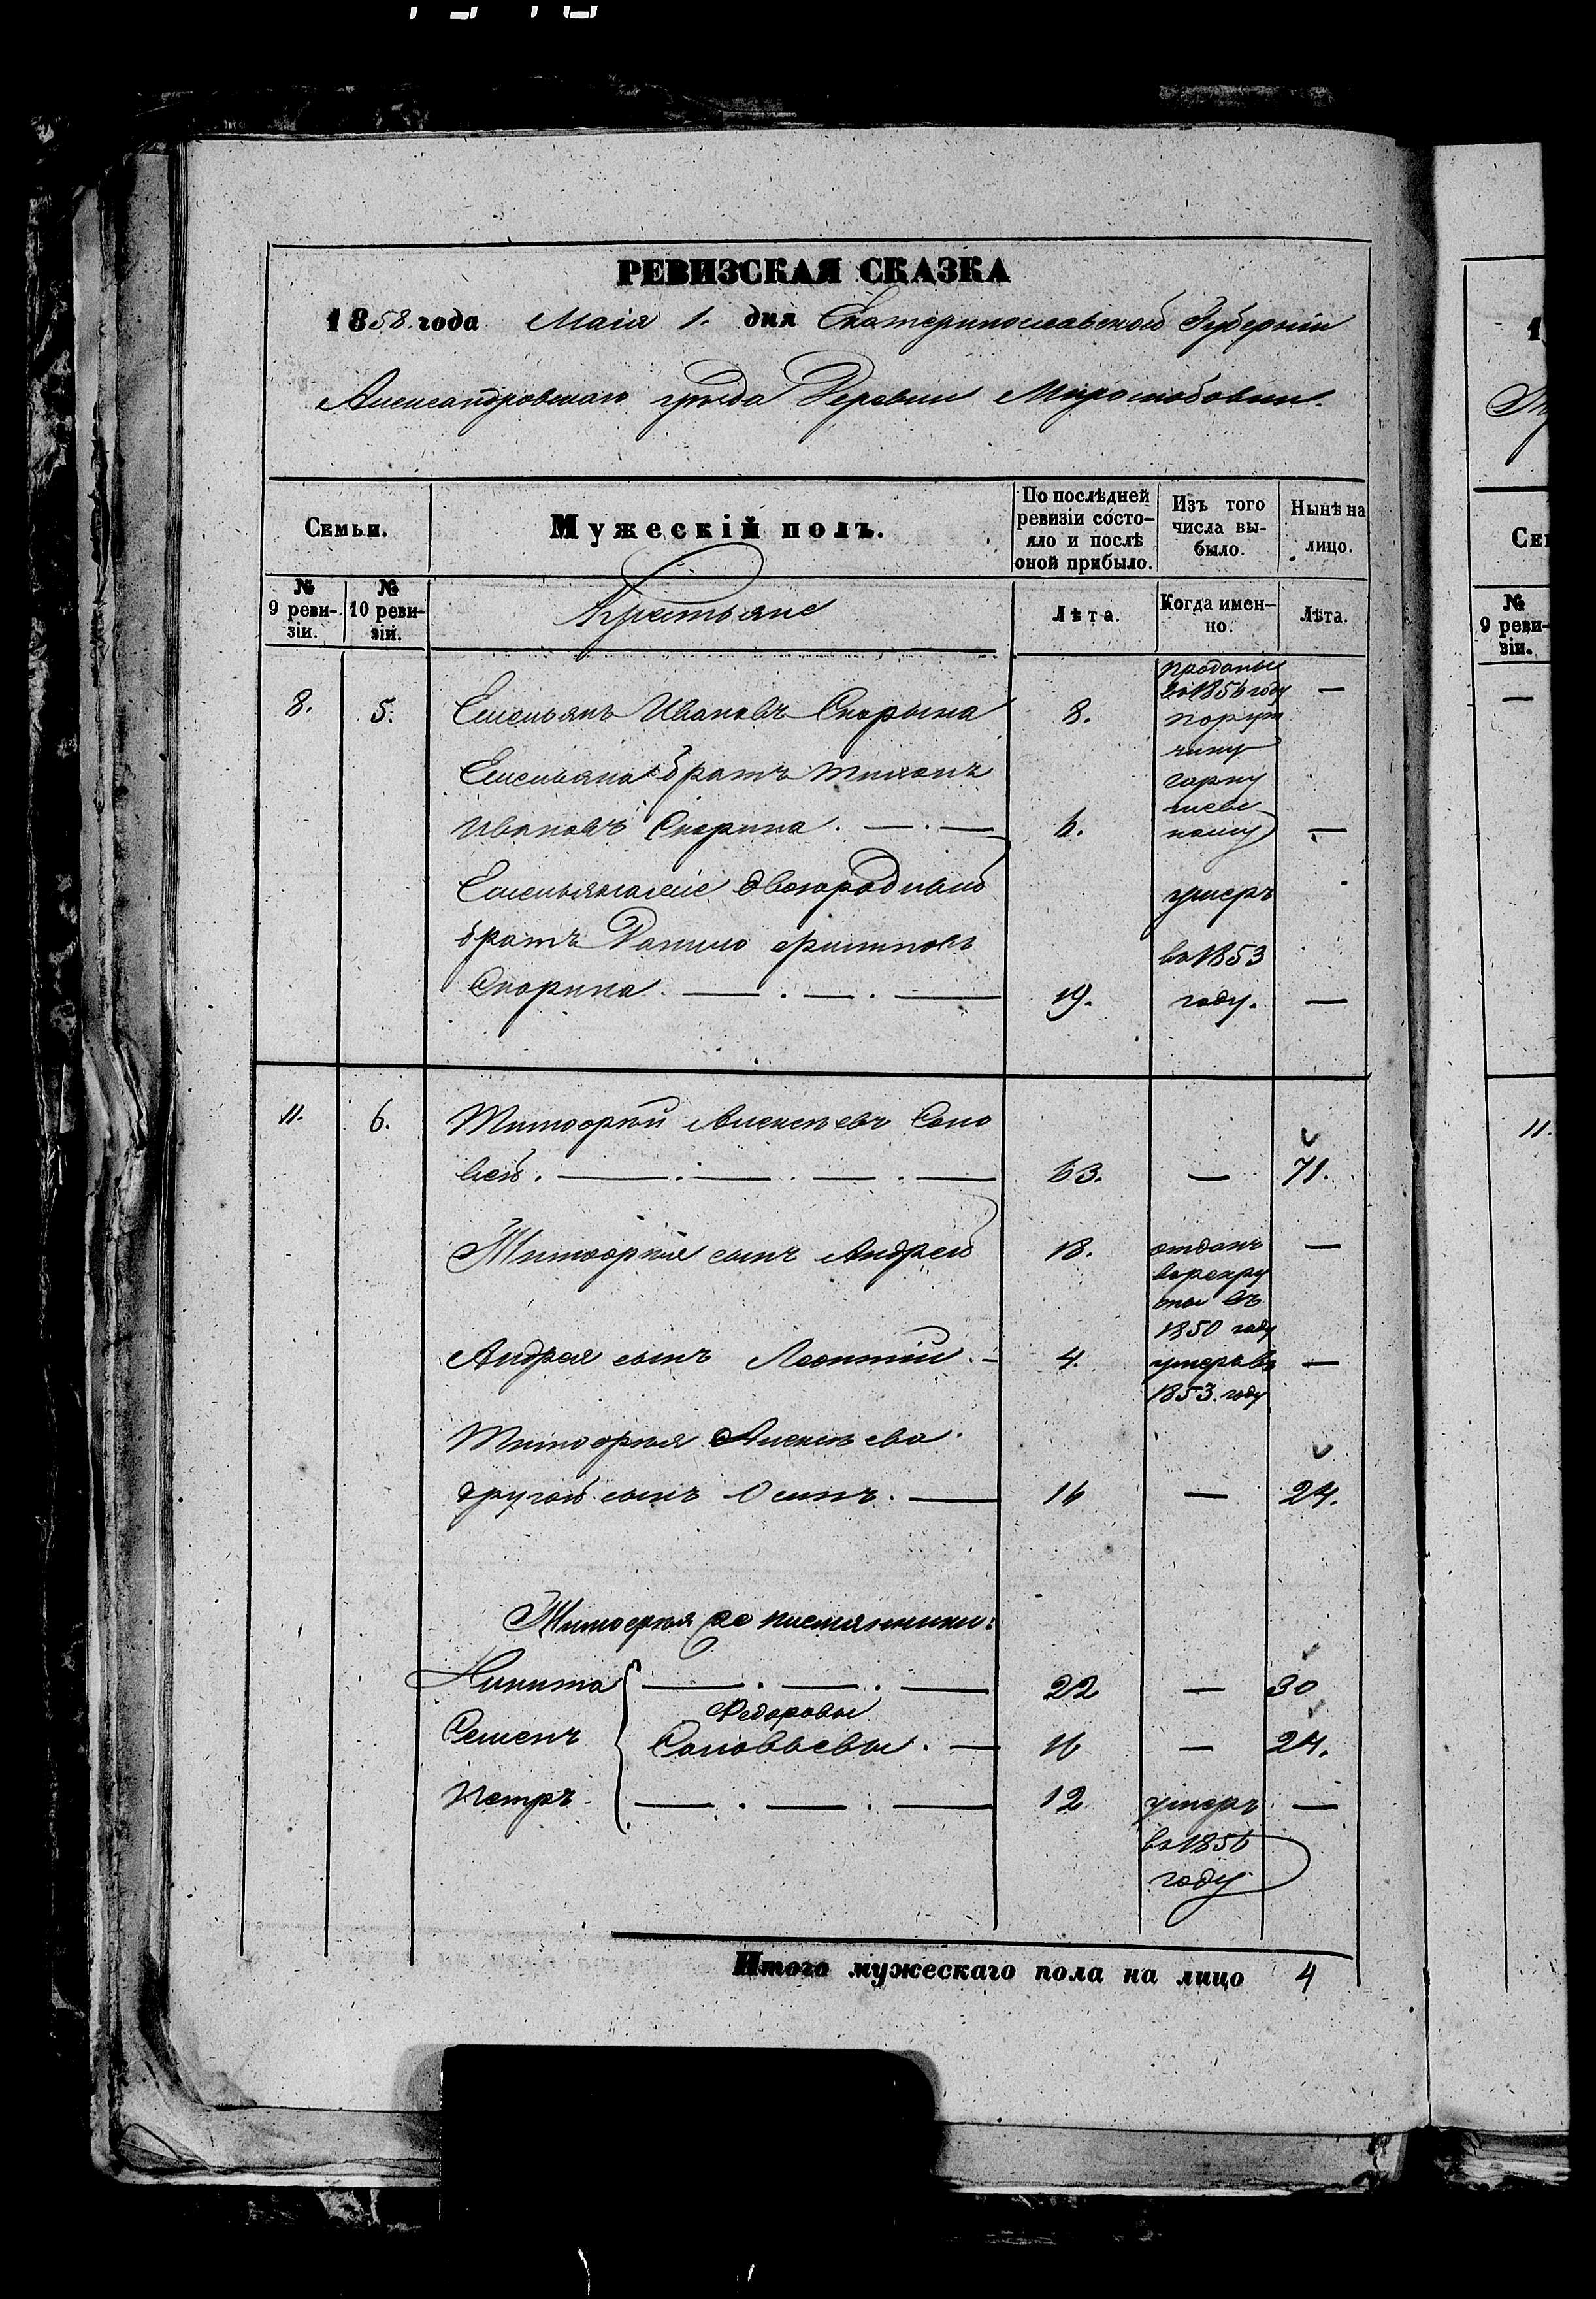 РЕВИЗСКАЯ СКАЗКА
1858. года Маія 1. дня Екатеринославской Губерніи
Александровскаго уѣзда Деревни Миролюбовки.
Семьи.
Мужескій полъ.
По послѣдней ревизіи состояло и послѣ оной прибыло.
Изъ того числа выбыло.
Нынѣ на лицо.
№ 9 ревизіи.
№ 10 ревизіи.
Крестьяне
Лѣта.
Когда именно.
Лѣта.
8. 5. Емельянъ Ивановъ Скорына 8. проданы —
во 1856 году
порут
чику
Емельяна братъ Тихонъ
Ивановъ Скорина. — . — 6. —
Емельяна двоюродный умеръ
братъ Данило Скорина. — . — . — 19. во 1853 году. —
11. 6. Тимофей Алексѣевъ Соло
вей. — . — . — . — 63. — 71.
Тимофея сынъ Андрей 18. отданъ —
въ рекру
ты въ
1850 году
Андрея сынъ Леонтій. – 4. умеръ во —
1853. году
Тимофея Алексѣева
другой сынъ Осипъ. — 16 — 24.
Тимофея племянники:
Никита — . — . — 22 — 30
Федоровы
Семенъ Соловьевы. — 16 — 24.
Петръ — . — . — 12 умеръ —
во 1856
году
Итого мужескаго пола на лицо 4
1
Се
№
9 реви-
зіи.
—
11.